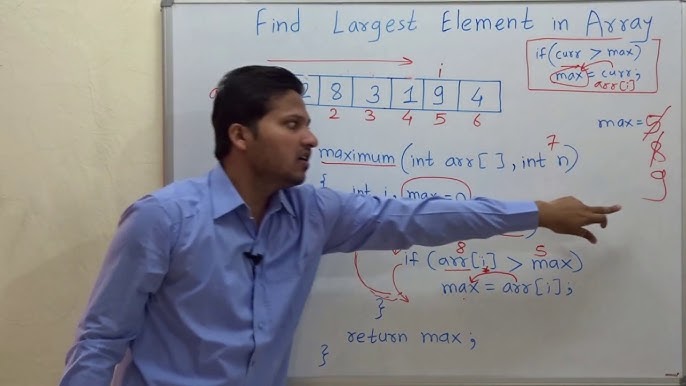 Find Largest Element in Array
if(curr > max)
max = curr;
arr[i]
i
2 8 3 1 9 4
2 3 4 5 6
max = 5
8
9
7
maximum (int arr[ ], int n)
{
int i, max =
)
8 5
if (arr[i] > max)
max = arr[i];
}
return max;
}